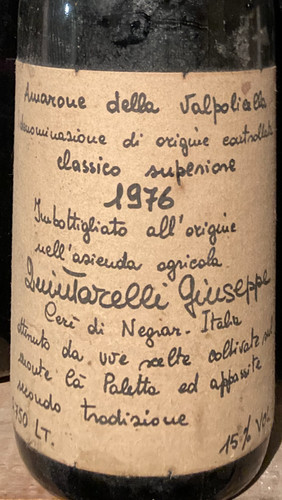 Amarone della Valpolicella
denominazione di origine controllata
classico superiore
1976
Imbottigliato all'origine
nell'azienda agricola
Quintarelli Giuseppe
Cerè di Negrar - Italia
ottenuto da uve scelte coltivate sul
monte Cà Paletta ed appassite
secondo tradizione
0,750 LT. 15% VOL